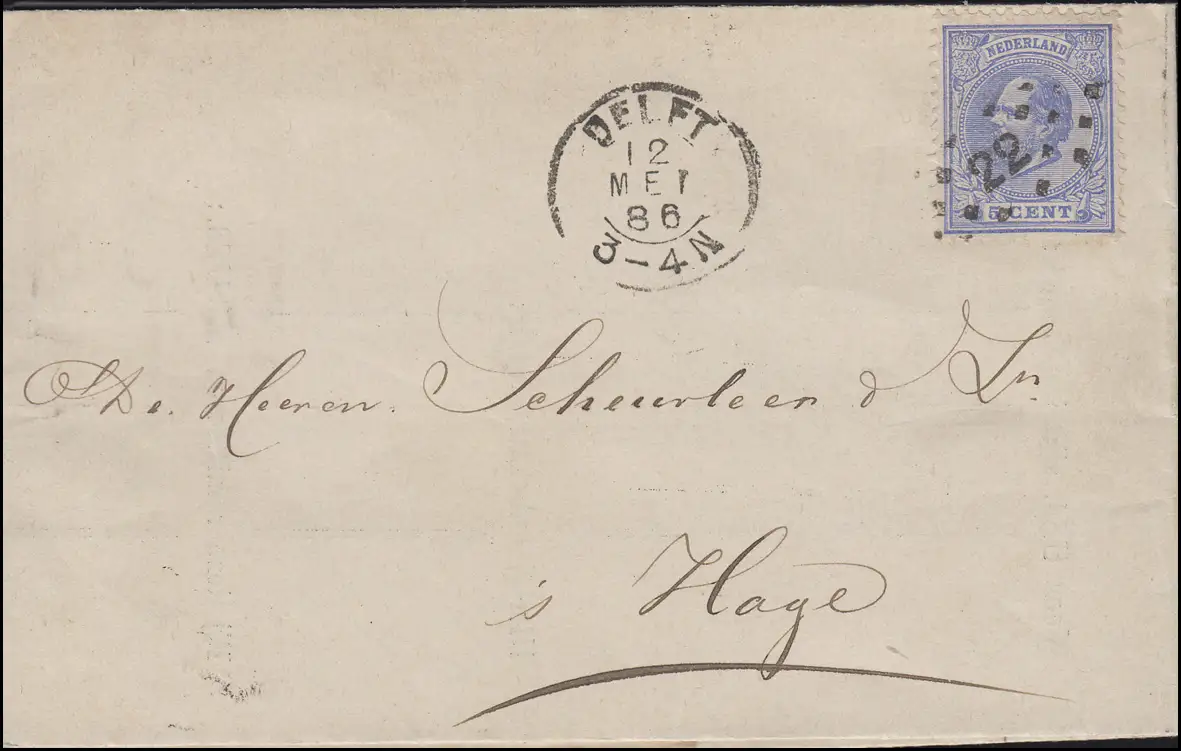 NEDERLAND
22
5 CENT
DELFT
12
MEI
86
3-4N
De Heeren. Scheurleer & Zn.
s Hage